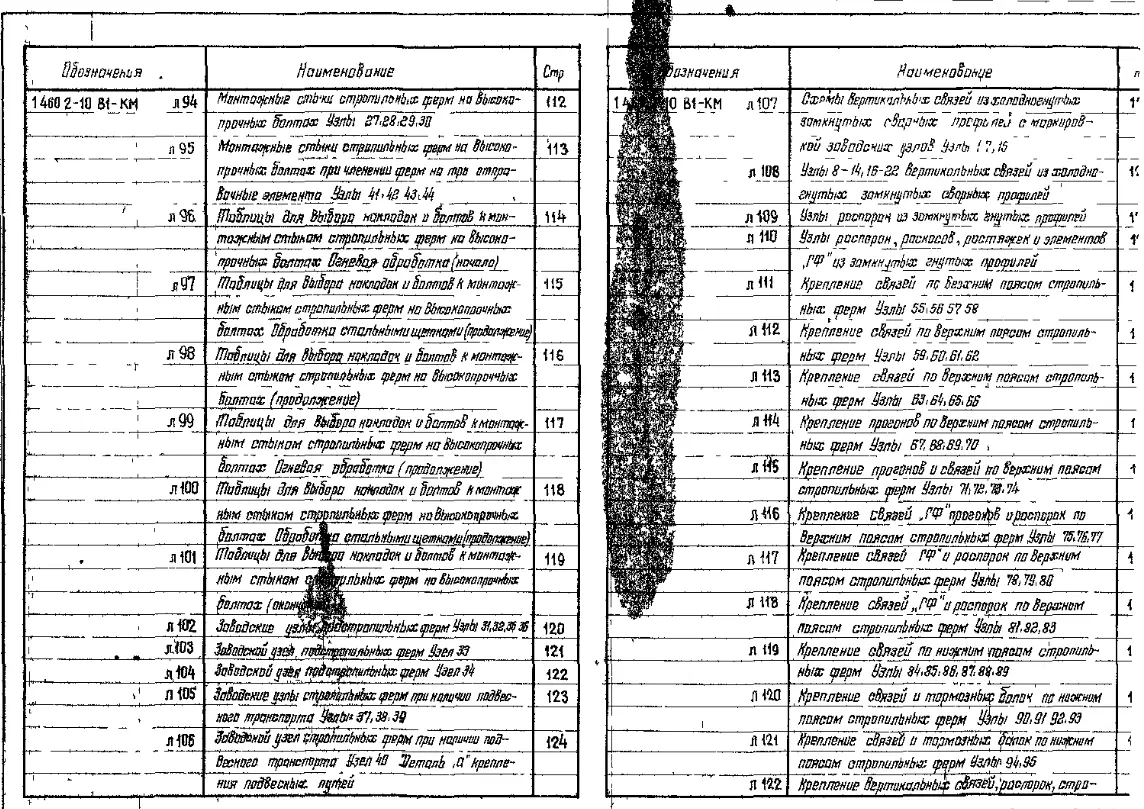 Обозначения Наименование Стр
1 460 2-10 В1-КМ л 94 Монтажные стыки стропильных ферм на высоко- 112
прочных болтах Узлы 27,28,29,30
л 95 Монтажные стыки стропильных ферм на высоко- 113
прочных болтах при членении ферм на три отпра-
вочные элемента Узлы 41,42 43,44
л 96 Таблицы для выбора накладок и болтов к мон- 114
тажным стыкам стропильных ферм на высоко-
прочных болтах Огневая обработка (начало)
л 97 Таблицы для выбора накладок и болтов к монтаж- 115
ным стыкам стропильных ферм на высокопрочных
болтах Обработка стальными щетками (продолжение)
л 98 Таблицы для выбора накладок и болтов к монтаж- 116
ным стыкам стропильных ферм на высокопрочных
болтах (продолжение)
л 99 Таблицы для выбора накладок и болтов к монтаж- 117
ным стыкам стропильных ферм на высокопрочных
болтах Огневая обработка (продолжение)
л 100 Таблицы для выбора накладок и болтов к монтаж- 118
ным стыкам стропильных ферм на высокопрочных
болтах Обработка стальными щетками (продолжение)
л 101 Таблицы для выбора накладок и болтов к монтаж- 119
ным стыкам стропильных ферм на высокопрочных
болтах
л 102 Заводские узлы подстропильных ферм Узлы 31,32,35 36 120
л 103 Заводской узел подстропильных ферм Узел 33 121
л 104 Заводской узел подстропильных ферм Узел 34 122
л 105 Заводские узлы стропильных ферм при наличии подвес- 123
ного транспорта Узлы 37,38,39
л 106 Заводской узел стропильных ферм при наличии под- 124
весного транспорта Узел 40 Деталь „А" крепле-
ния подвесных путей
Обозначения Наименование
10 В1-КМ л 107 Схемы вертикальных связей из холодногнутых
замкнутых сварных профилей с маркиров-
кой заводских узлов Узлы 1 7,15
л 108 Узлы 8-14,16-22 вертикальных связей из холодно-
гнутых замкнутых сварных профилей
л 109 Узлы распорок из замкнутых гнутых профилей
л 110 Узлы распорок, раскосов, растяжек и элементов
„ГФ" из замкнутых гнутых профилей
л 111 Крепление связей по верхним поясам стропиль-
ных ферм Узлы 55,56 57 58
л 112 Крепление связей по верхним поясам стропиль-
ных ферм Узлы 59,60,61,62
л 113 Крепление связей по верхним поясам стропиль-
ных ферм Узлы 63,64,65,66
л 114 Крепление прогонов по верхним поясам стропиль-
ных ферм Узлы 67,68,69,70
л 115 Крепление прогонов и связей по верхним поясам
стропильных ферм Узлы 71,72,73,74
л 116 Крепление связей „ГФ" прогонов и распорок по
верхним поясам стропильных ферм Узлы 75,76,77
л 117 Крепление связей ГФ" и распорок по верхним
поясам стропильных ферм Узлы 78,79,80
л 118 Крепление связей „ГФ" и распорок по верхном
поясам стропильных ферм Узлы 81,82,83
л 119 Крепление связей по нижним поясам стропиль-
ных ферм Узлы 84,85,86,87,88,89
л 120 Крепление связей и тормозных балок по нижним
поясам стропильных ферм Узлы 90,91 92,93
л 121 Крепление связей и тормозных балок по нижним
поясам стропильных ферм Узлы 94,95
л 122 Крепление вертикальных связей, распорок, стро-